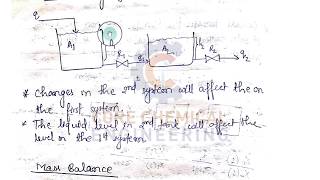 q
A₁ R₁ A₂ R₂ h₂ q₂
* Changes in the 2nd system will affect the on
the first system.
* The liquid level in 2nd tank will affect the
level in the 1st system
Mass Balance